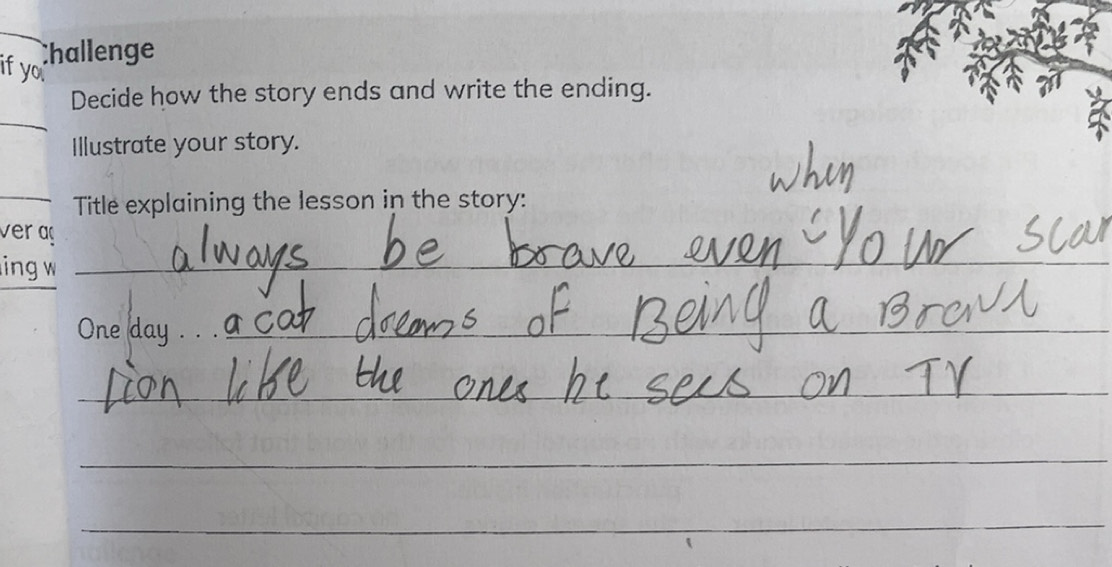 if you
challenge
Decide how the story ends and write the ending.
Illustrate your story.
when
Title explaining the lesson in the story:
always be brave even your scar
One day... a cat dreams of Being a Brave
Lion like the ones he sees on TV
ver
ing w